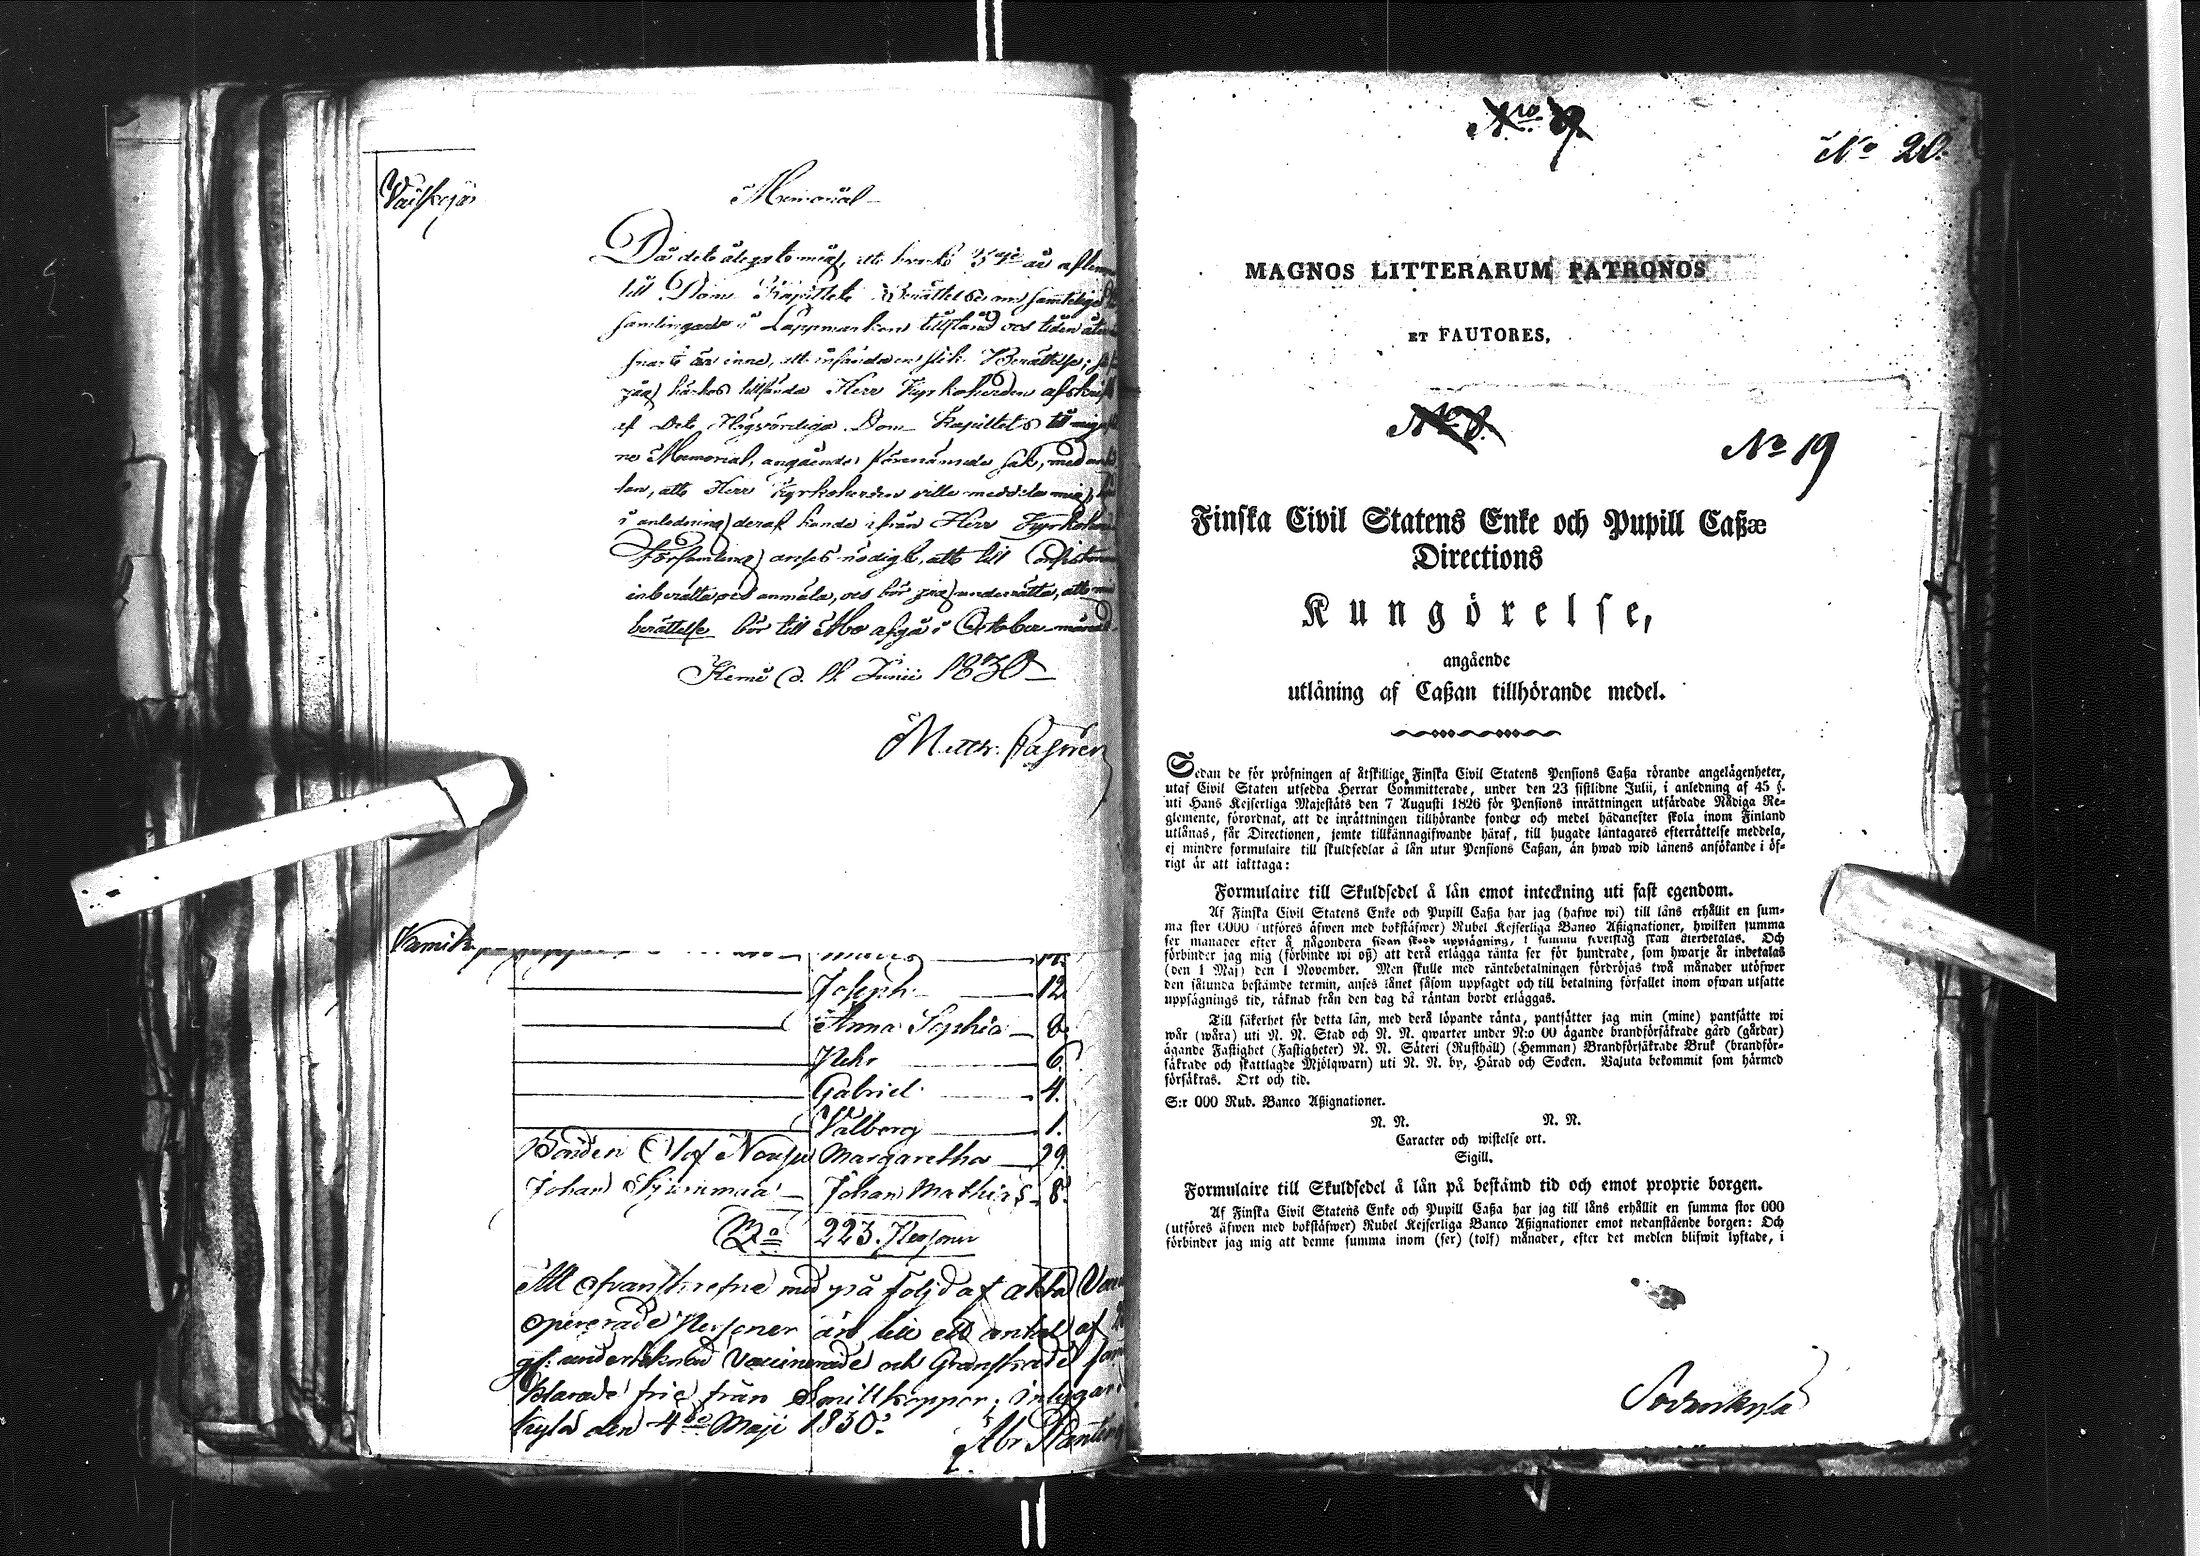 Memorial
Då det åligger mig, att hvart 3dje år aflemna
till Dom Kapitlet Berättelse om samtelige För
samlingars i Lappmarken tillstånd och tiden åter
snart är inne, att insända en slik Berättelse; så
får jag härhos tillsända Herr Kyrkoherden afskrift
af Det Högvördiga Dom Kapitlets till mig
ne Memorial, angående förenämde sak, med
lan, att Herr Kyrkoherden ville meddela mig,
i anledning deraf kunde ifrån Herr Kyrkoher
Församling anses nödigt, att till Consistorium
inberätta och anmäla, och bör jag underrätta, att
berättelse bör till Åbo afgå i October månad.
Kemi d. Junii 1830
Matth. Castrén
Joseph 12
Anna Sophia 8
Pehr 6
Gabriel 4.
Valborg 1.
Bonden Olof Margaretha 29
Johan Johan Mathias 8
223. Personer
Att ofvanskrefne med på följd af äkta
opererade Personer är till ett antal af
af undertecknad Vaccinerade och Granskade
klarade frie från Smittkoppor, intygar
kylä den 4de Maji 1830.
Abr
Nro
No 20.
MAGNOS LITTERARUM PATRONOS
ET FAUTORES,
No 8.
No 19
Finska Civil Statens Enke och Pupill Caßæ
Directions
Kungörelse,
angående
utlåning af Caßan tillhörande medel.
Sedan de för pröfningen af åtskillige Finska Civil Statens Pensions Caßa rörande angelägenheter,
utaf Civil Staten utsedda Herrar Committerade, under den 23 sistlidne Julii, i anledning af 45 §.
uti Hans Kejserliga Majestäts den 7 Augusti 1826 för Pensions inrättningen utfärdade Nådiga Re-
glemente, förordnat, att de inrättningen tillhörande fonder och medel hädanefter skola inom Finland
utlånas, får Directionen, jemte tillkännagifwande häraf, till hugade låntagares efterrättelse meddela,
ej mindre formulaire till skuldsedlar å lån utur Pensions Caßan, än hwad wid lånens ansökande i öf-
rigt är att iakttaga:
Formulaire till Skuldsedel å lån emot inteckning uti fast egendom.
Af Finska Civil Statens Enke och Pupill Caßa har jag (hafwe wi) till låns erhållit en sum-
ma stor 0000 (utföres äfwen med bokstäfwer) Rubel Kejserliga Banco Aßignationer, hwilken summa
sex månader efter å någondera sidan skedd uppsägning, i summa silfverslag skall återbetalas. Och
förbinder jag mig (förbinde wi oß) att derå erlägga ränta sex för hundrade, som hwarje år inbetalas
(den 1 Maj) den 1 November. Men skulle med räntebetalningen fördröjas twå månader utöfwer
den sålunda bestämde termin, anses lånet såsom uppsagdt och till betalning förfallet inom ofwan utsatte
uppsägnings tid, räknad från den dag då räntan bordt erläggas.
Till säkerhet för detta lån, med derå löpande ränta, pantsätter jag min (mine) pantsätte wi
wår (wåra) uti N. N. Stad och N. N. qwarter under N:o 00 ägande brandförsäkrade gård (gårdar)
ägande Fastighet (Fastigheter) N. N. Säteri (Rusthåll) (Hemman) Brandförsäkrade Bruk (brandför-
säkrade och skattlagde Mjölqwarn) uti N. N. by, Härad och Socken. Valuta bekommit som härmed
försäkras. Ort och tid.
S:r 000 Rub. Banco Aßignationer.
N. N. N. N.
Caracter och wistelse ort.
Sigill.
Formulaire till Skuldsedel å lån på bestämd tid och emot proprie borgen.
Af Finska Civil Statens Enke och Pupill Caßa har jag till låns erhållit en summa stor 000
(utföres äfwen med bokstäfwer) Rubel Kejserliga Banco Aßignationer emot nedanstående borgen: Och
förbinder jag mig att denne summa inom (sex) (tolf) månader, efter det medlen blifwit lyftade, i
Sodankylä